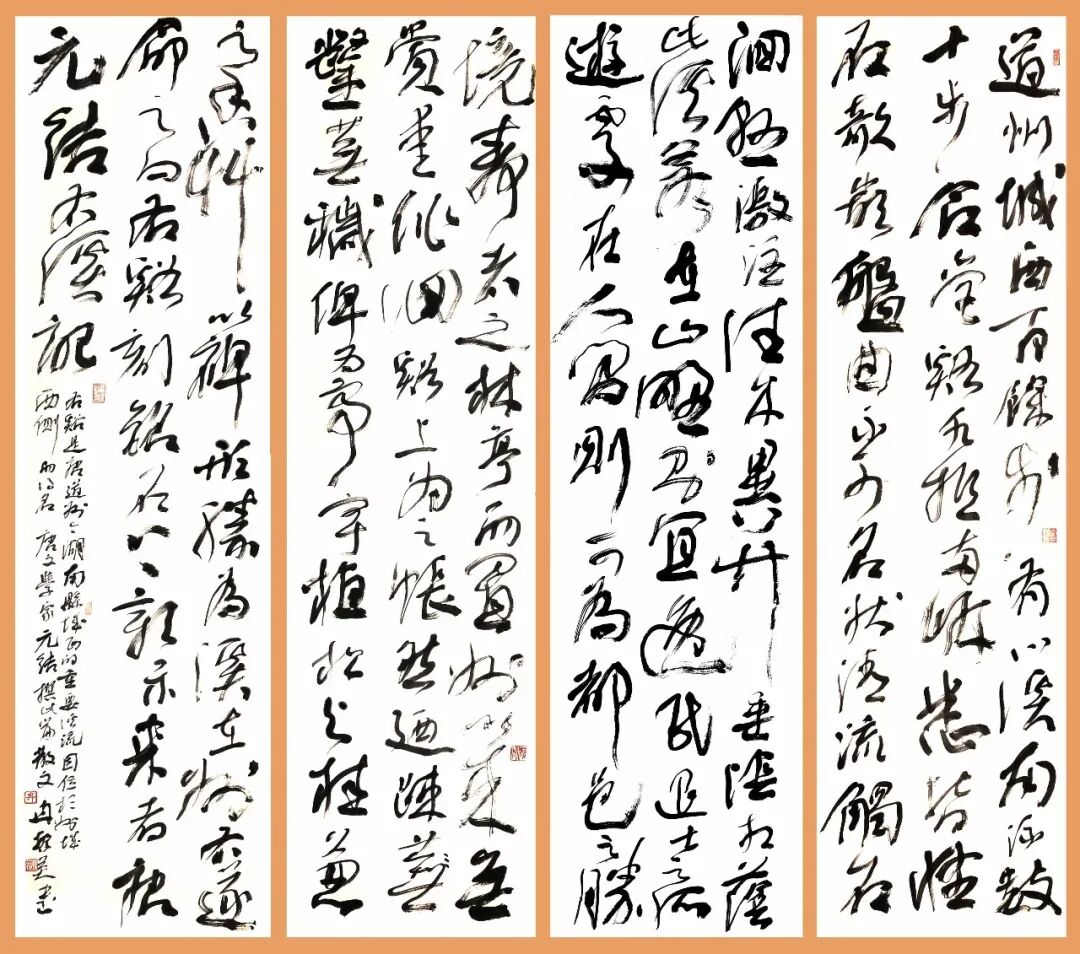 道州城西百餘步有小溪南流數
十步合營谿水抵兩岸悉皆怪
石欹嵌盤曲不可名狀清流觸石
洄懸激注佳木異竹垂陰相蔭
此溪若在山野則宜逸民退士之所
遊處在人間則可為都邑之勝
境靜者之林亭而置州以來無
賞愛徘徊谿上為之悵然迺疎蕪
鑿蕪穢俾為亭宇植松與桂兼
之香草以裨形勝為溪在州右遂
命之曰右谿刻銘石上彰示来者唐
元結右溪記
右谿是唐道州今湖南縣城西的重要溪流因位於州城
西側而得名唐文學家元結撰此篇散文書